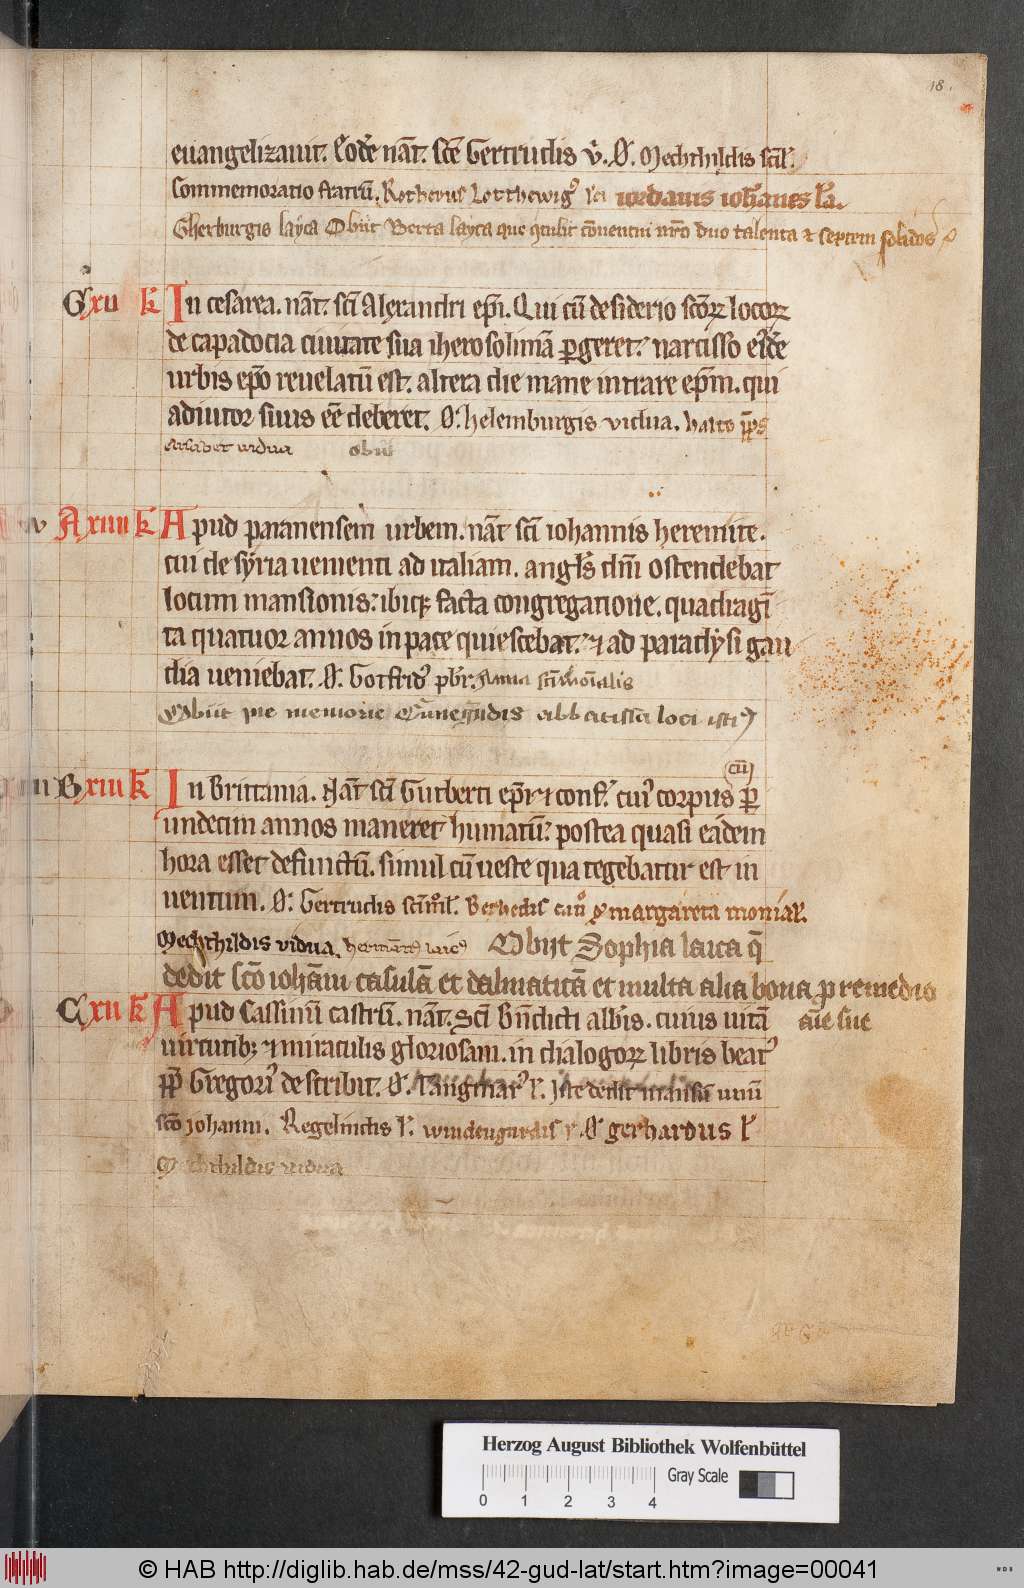 18.
euangelizauit. Eodē nāt. scē Gertrudis v̄. O. Mechthildis
Commemoratio fratrū. Rotherus iordanis iohānes
Gherburgis layca Obiit Berta layca que 9tulit cōuentui nrō duo talenta & septem solidos
G xv k̄ In cesarea. nāt. scī Alexandri ep̄i. Qui cū desiderio scōꝝ locoꝝ
de capadocia ciuitate sua iherosolimā ꝑgeret. narcisso
urbis ep̄o reuelatū est. altera die mane intrare ep̄m. qui
adiutor suus eē deberet. O. helemburgis vidua.
vidua obiit
A xiiii k̄ Apud paranensem urbem. nāt scī iohannis heremite.
cui de syria uenienti ad italiam. angl's dn̄i ostendebat
locum mansionis. ibiqꝫ facta congregatione. quadragī
ta quatuor annos in pace quiescebat. & ad paradysi gau
dia ueniebat. O. Gotfrid' pbr.
Obiit pie memorie abbatissa loci isti9
cū
B xiii k̄ In Brittania. Nāt scī Gutberti ep̄i & conf. cui' corpus ꝑ
undecim annos maneret humatū. postea quasi eādem
hora esset defunctū. simul cū ueste qua tegebatur est in
uentum. O. Gertrudis margareta monial'.
Mechthildis vidua. Obijt Sophia laica q̄
dedit scō iohāni casulā et dalmaticā et multa alia bona ꝓ remedio
C xii k̄ Apud Cassinū castrū. nāt. Scī Bn̄dicti abb'is. cuius uitā aīe sue
uirtutibꝫ & miraculis gloriosam. in dialogoꝝ libris beat'
pp̄ Gregori' describit. O. Tangmar' l'. Iste dedit mansū unū
scō iohanni. Regelindis l'. O gerhardus l'
Mechthildis vidua
Herzog August Bibliothek Wolfenbüttel
Gray Scale
0 1 2 3 4
© HAB http://diglib.hab.de/mss/42-gud-lat/start.htm?image=00041